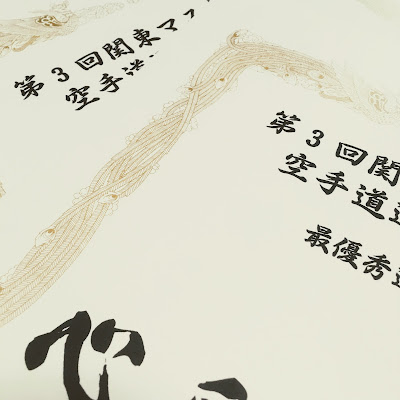 第3回関東マス
空手道
第3回関
空手道選
最優秀選